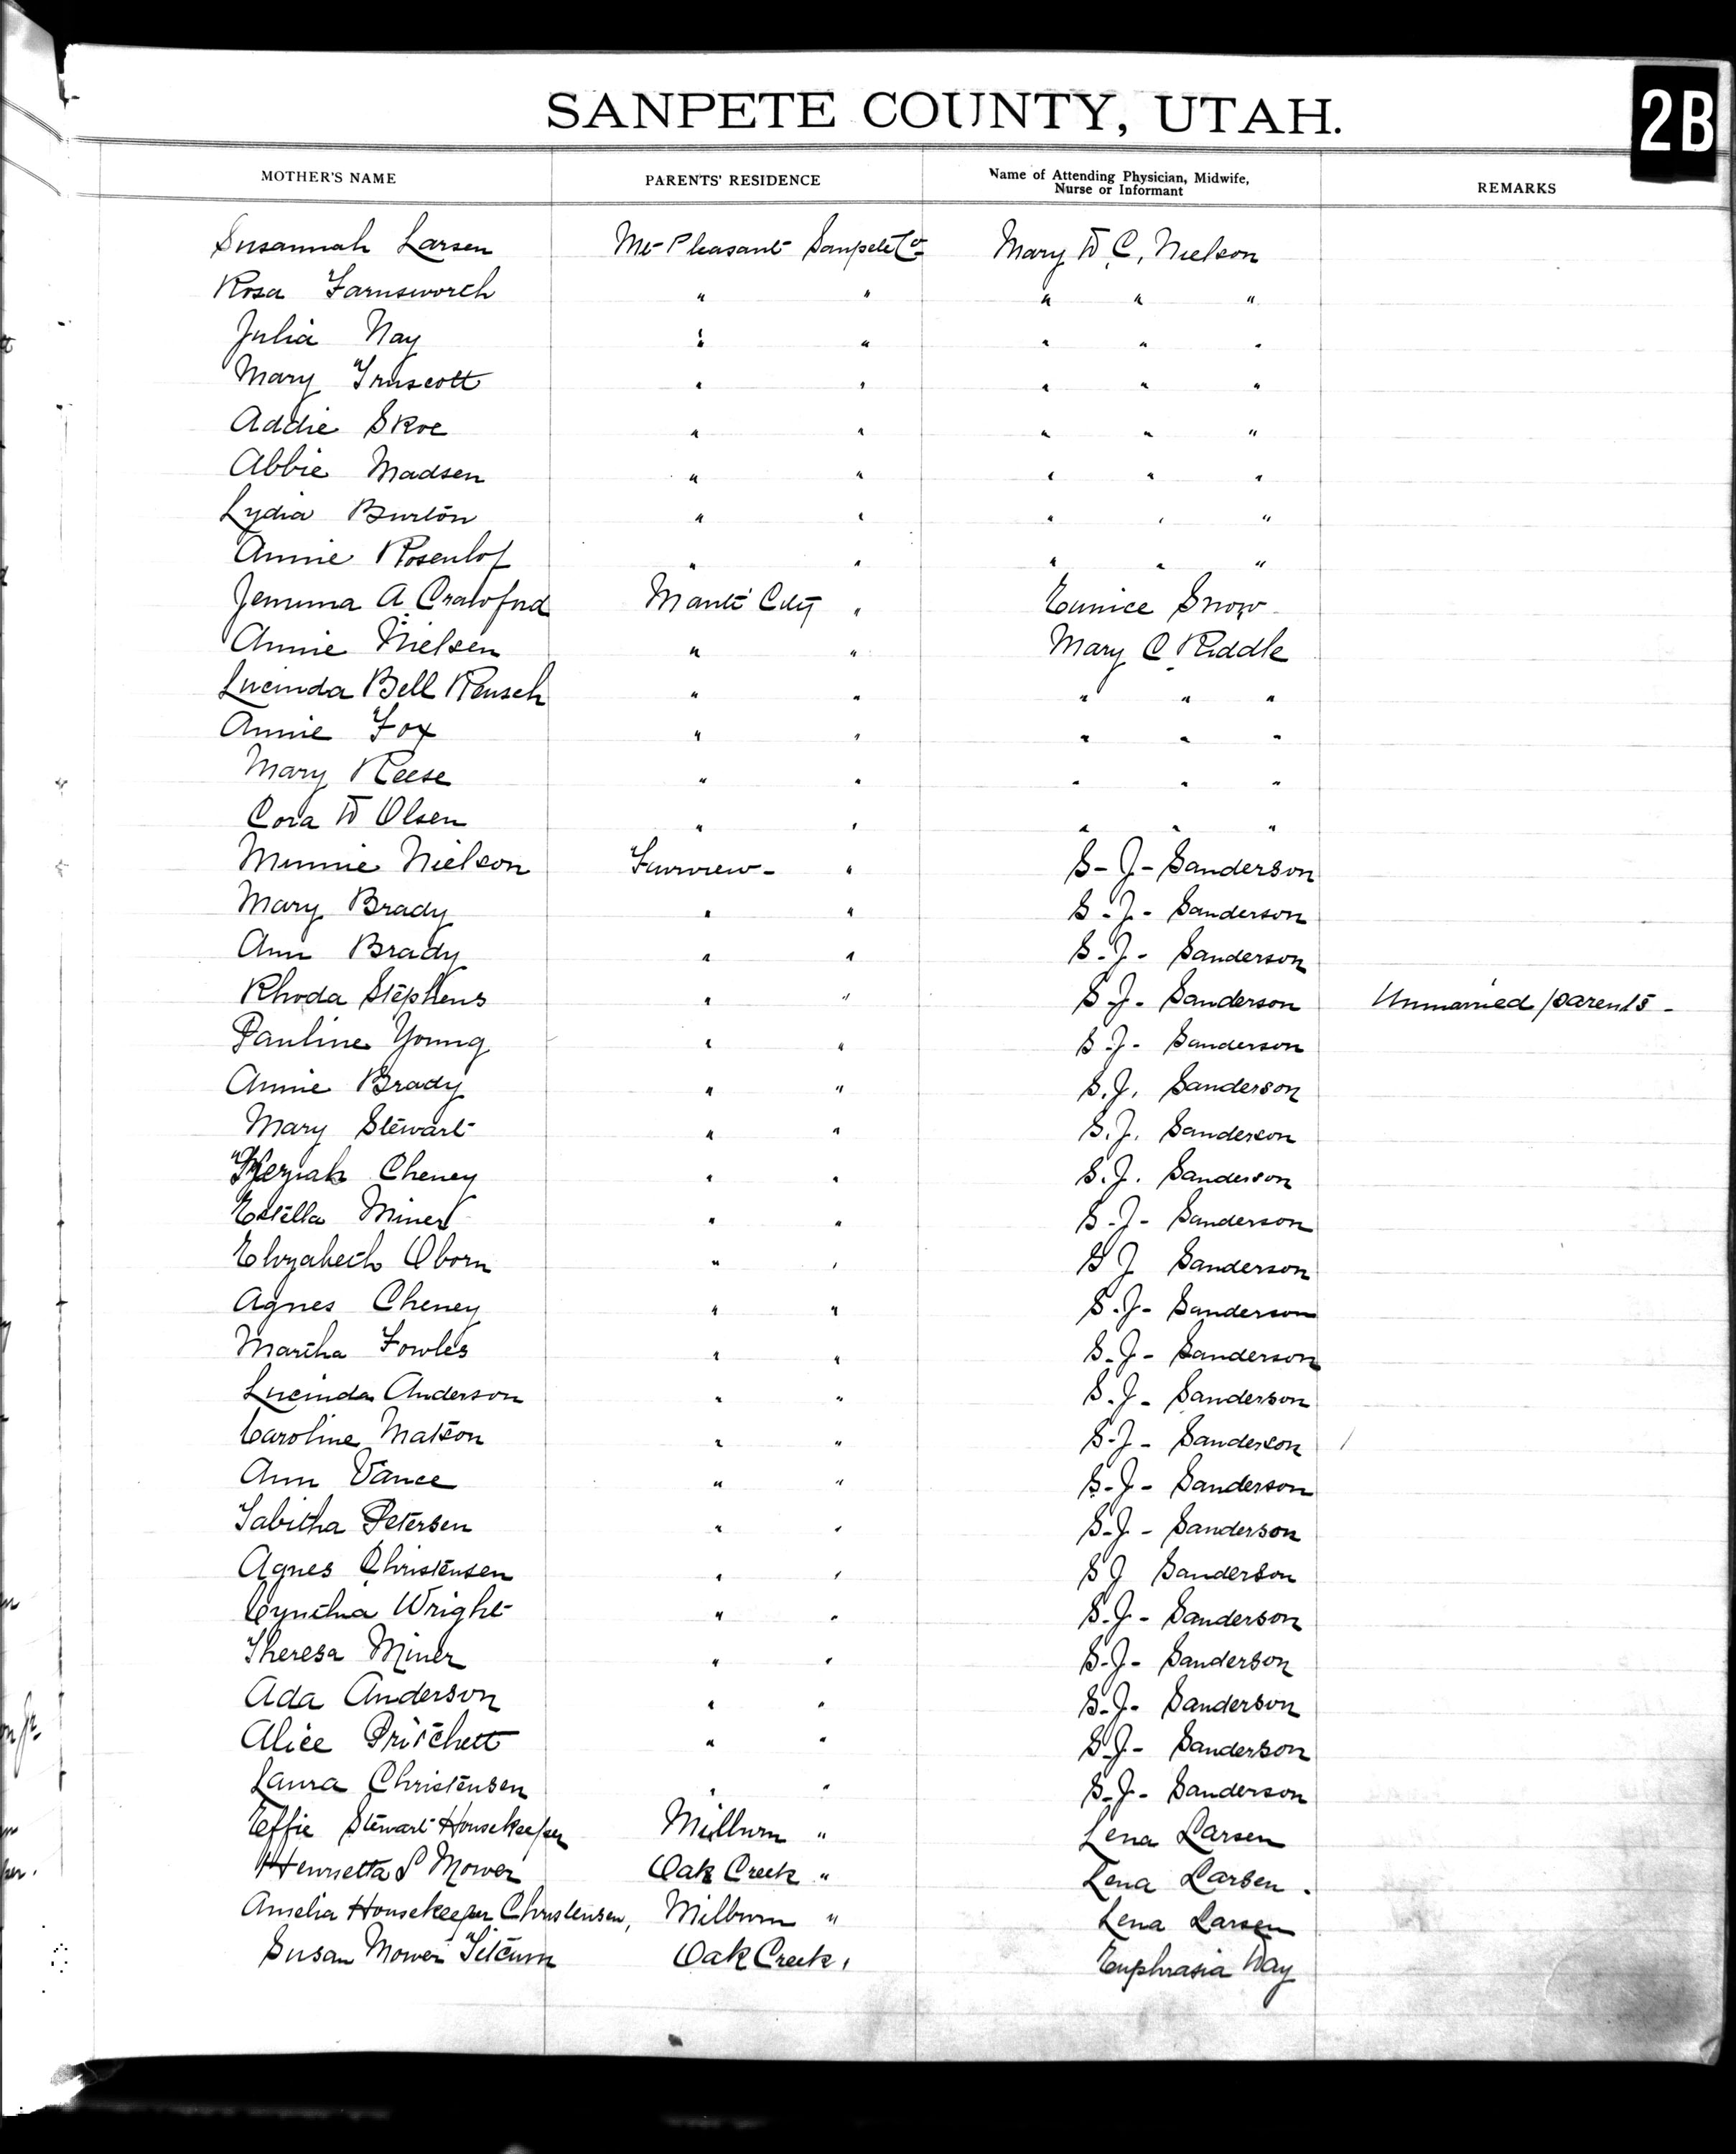 SANPETE COUNTY, UTAH.
2B
MOTHER'S NAME PARENTS' RESIDENCE Name of Attending Physician, Midwife, Nurse or Informant REMARKS
Susannah Larsen Mt Pleasant Sanpete Co Mary D C, Nielson
Rosa Farnsworth " " " " "
Julia Nay " " " " "
Mary Truscott " " " " "
Addie Skoe " " " " "
Abbie Madsen " " " " "
Lydia Burton " " " " "
Annie Rosenlof " " " " "
Jemima A. Crawford Manti City " Eunice Snow
Annie Nielsen " " Mary C Riddle
Lucinda Bell Reusch " " " " "
Annie Fox " " " " "
Mary Reese " " " " "
Cora D Olsen " " " " "
Minnie Nielson Fairview - " S - J - Sanderson
Mary Brady " " S - J - Sanderson
Ann Brady " " S. J - Sanderson
Rhoda Stephens " " S J - Sanderson Unmarried parents -
Pauline Young " " S J - Sanderson
Annie Brady " " S. J. Sanderson
Mary Stewart " " S. J. Sanderson
Keziah Cheney " " S. J. Sanderson
Estella Miner " " S - J - Sanderson
Elizabeth Oborn " " S J Sanderson
Agnes Cheney " " S. J - Sanderson
Martha Fowles " " S. J - Sanderson
Lucinda Anderson " " S. J - Sanderson
Caroline Matson " " S - J - Sanderson
Ann Vance " " S - J - Sanderson
Tabitha Petersen " " S - J - Sanderson
Agnes Christensen " " S J Sanderson
Cyntha Wright " " S. J - Sanderson
Theresa Miner " " S - J - Sanderson
Ada Anderson " " S - J - Sanderson
Alice Pritchett " " S J - Sanderson
Laura Christensen " " S - J - Sanderson
Effie Stewart Housekeeper Milburn " Lena Larsen
Henrietta S Mower Oak Creek " Lena Larsen .
Amelia Housekeeper Christensen, Milburn " Lena Larsen
Susan Mower Oak Creek " Euphrasia Day